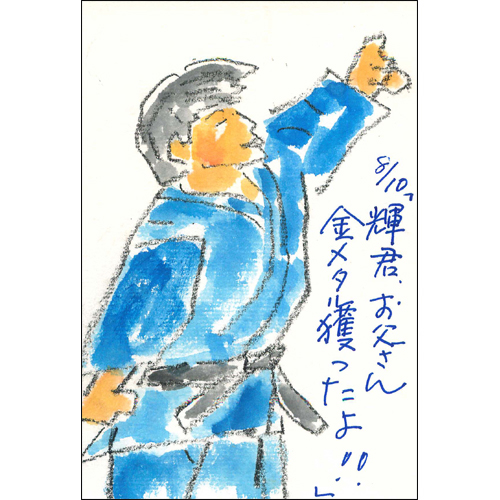 8/10「輝君、お父さん
金メタル獲ったよ!!」